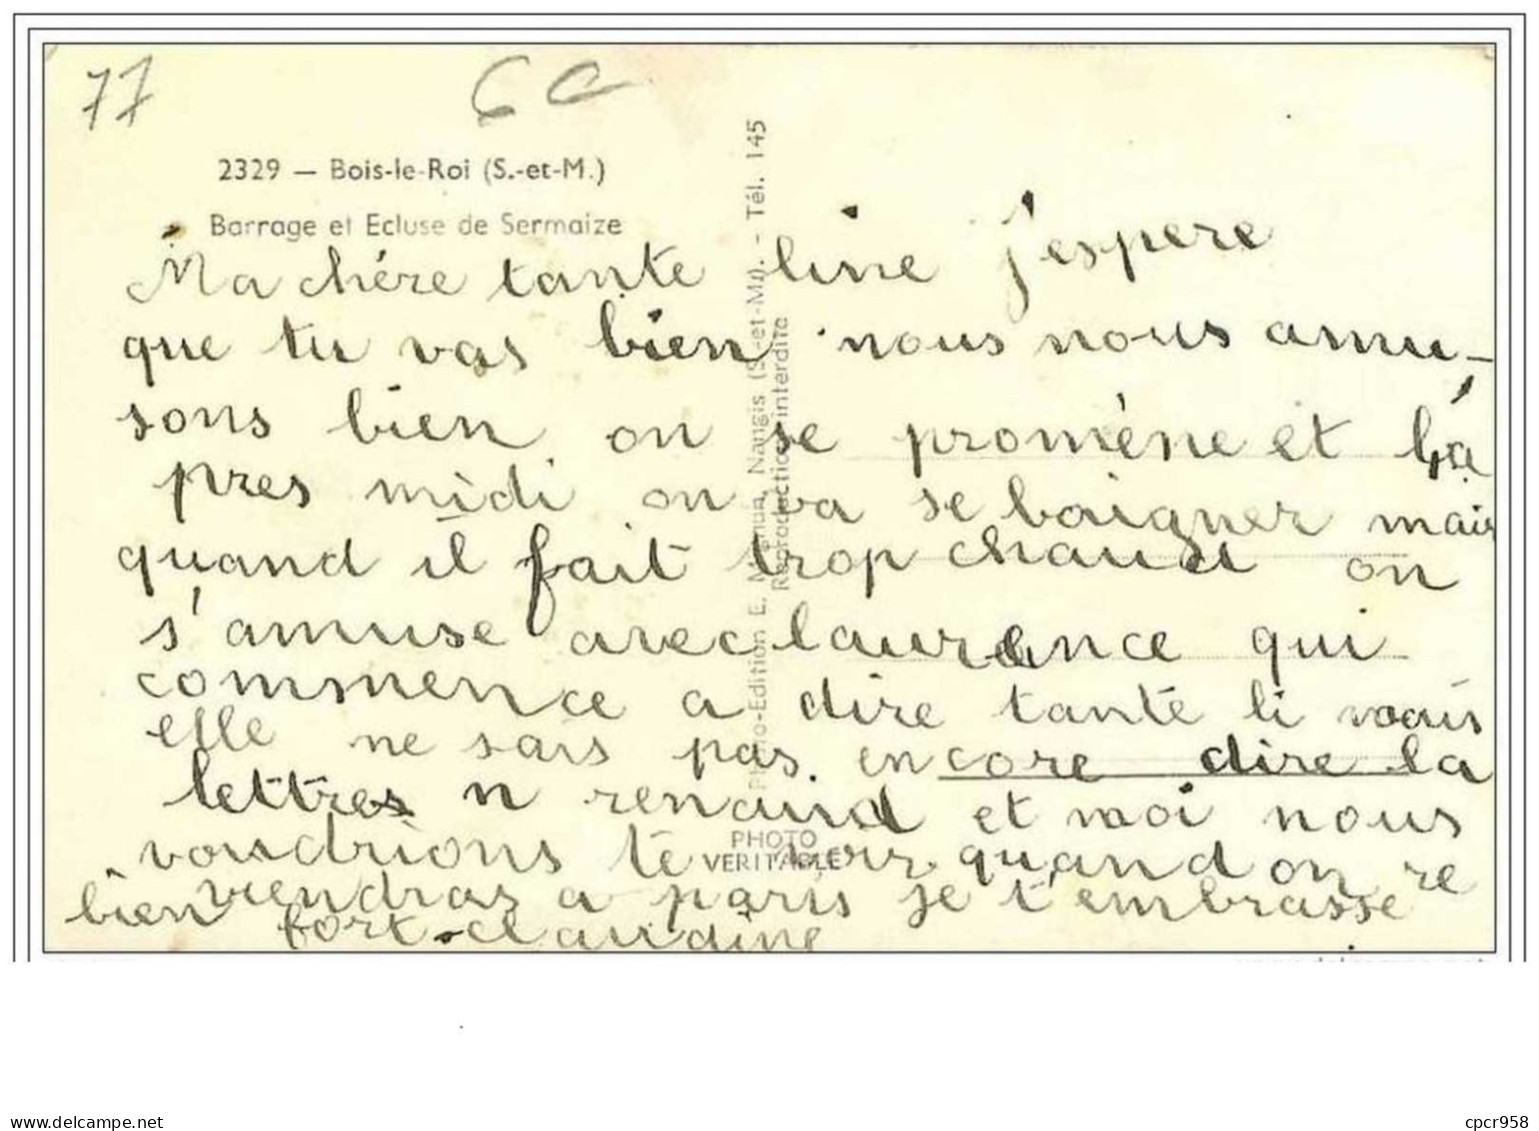 77
2329 — Bois-le-Roi (S.-et-M.)
Barrage et Ecluse de Sermaize
Ma chére tante line j'espere
que tu vas bien nous nous amu-
sons bien on se promène et l'a
pres midi on va se baigner mais
quand il fait trop chaud on
s'amuse avec laurence qui
commence a dire tante li mais
elle ne sais pas encore dire la
lettres n renaud et moi nous
voudrions te voir quand on re
viendras a paris je t'embrasse
bien fort claudine
Photo-Edition E. Mignon, Nangis (S.-et-M.). - Tél. 145
Reproduction interdite
PHOTO
VERITABLE
delcampe.net
cpcr958